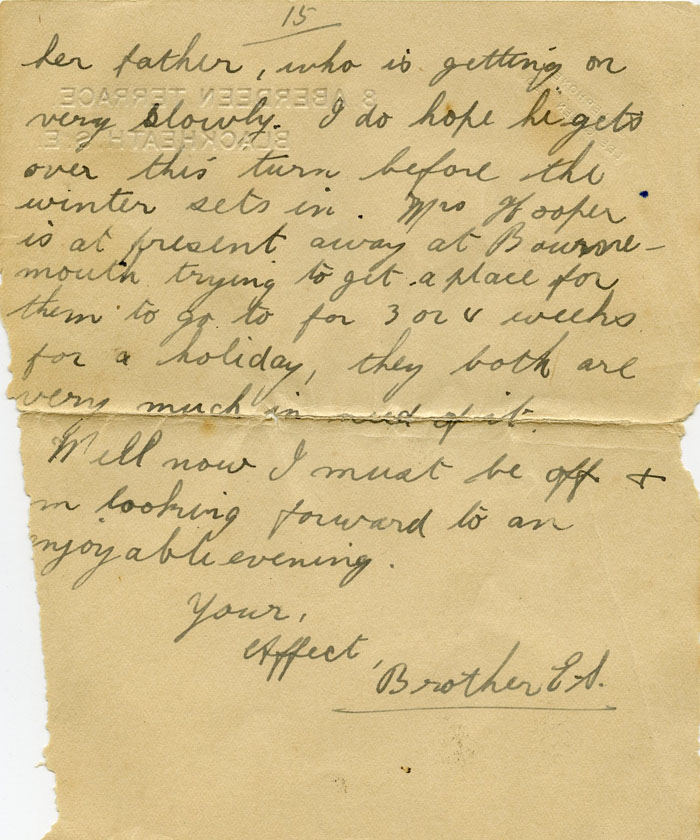 15
her father, who is getting on
very slowly. I do hope he gets
over this turn before the
winter sets in. Mrs Hooper
is at present away at Bourne-
mouth trying to get a place for
them to go to for 3 or 4 weeks
for a holiday, they both are
very much in need of it.
Well now I must be off &
m looking forward to an
njoyable evening.
Your,
Affect,
Brother E.S.
8 ABERDEEN TERRACE
BLACKHEATH. S.E.